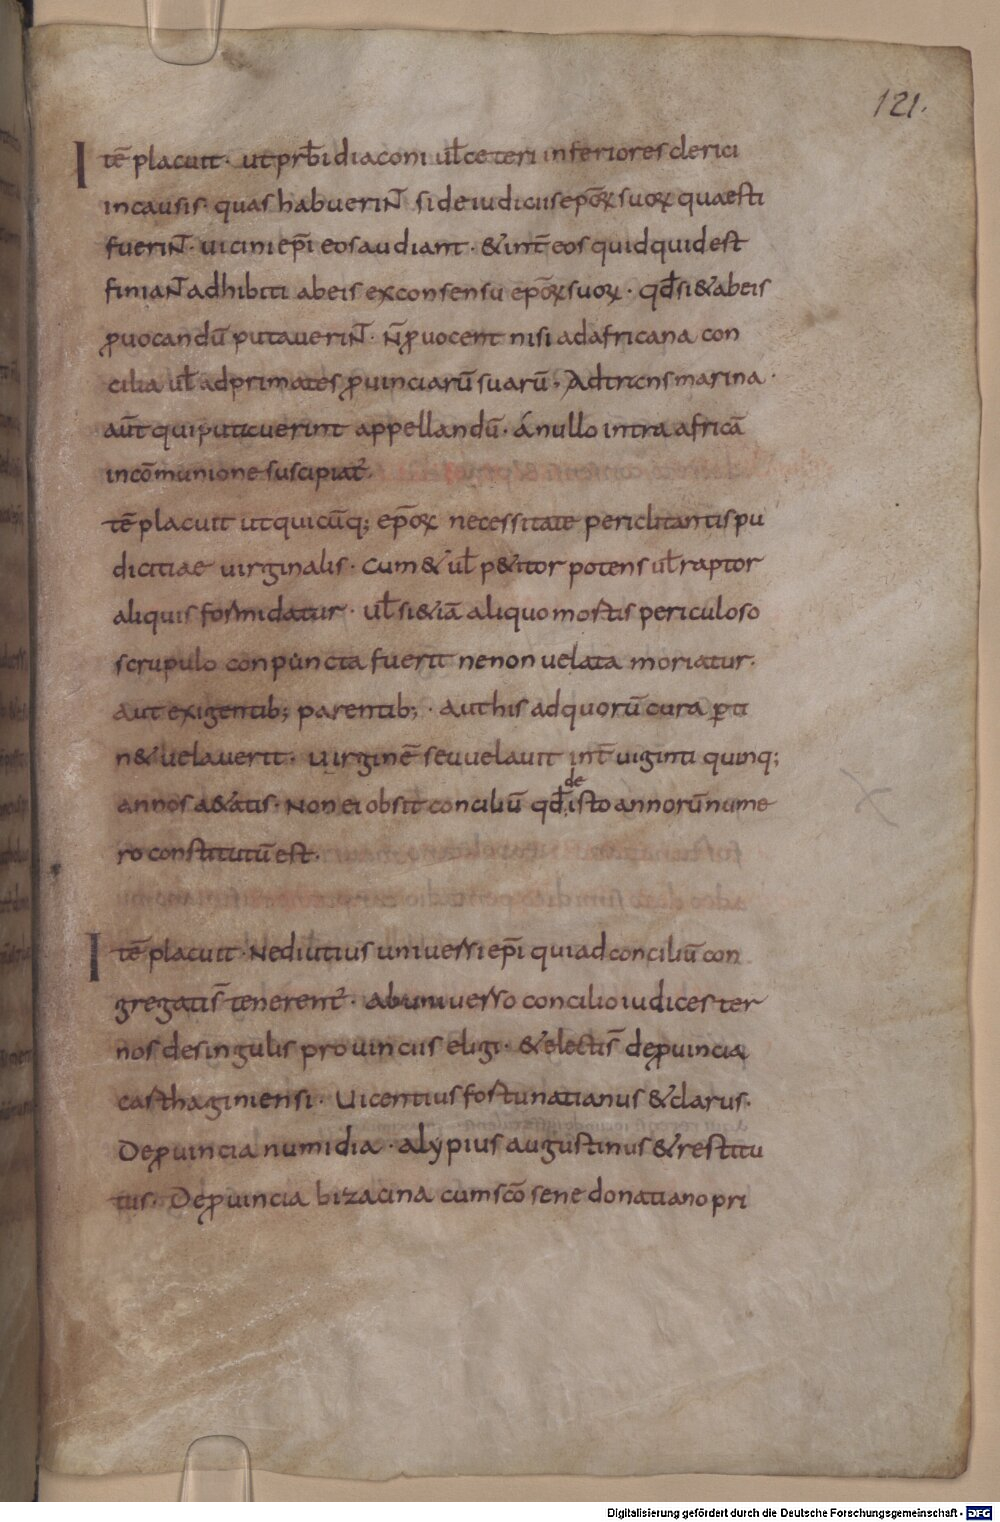 121.
Itē placuit· ut prb̄i diaconi ul̄ ceteri inferiores clerici
in causis· quas habuerin̄t si de iudiciis ep̄oꝝ suoꝝ quaesti
fuerin̄t· uicini ep̄i eos audiant· & int̄ eos quidquid est
finian̄t adhibiti ab eis ex consensu ep̄oꝝ suoꝝ· qđ si & ab eis
ꝓuocandū putauerin̄t· n̄ ꝓuocent nisi ad africana con
cilia ul̄ ad primates ꝓuinciarū suarū· Ad trans marina·
aūt qui putauerint appellandū· á nullo intra africā
in cōmunione suscipiat̄·
tē placuit ut quicūq; ep̄oꝝ necessitate periclitantis pu
dicitiae uirginalis· Cum & ul̄ p&itor potens ul̄ raptor
aliquis formidatur· ul̄ si &iā aliquo mortis periculoso
scrupulo conpuncta fuerit ne non uelata moriatur·
aut exigentib; parentib;· aut his ad quorū cura ꝑti
n& uelauerit· uirginē seu uelauit int̄ uiginti quinq;
annos a&atis· Non ei obsit conciliū qđ de isto annorū nume
ro constitutū est·
Itē placuit· Ne diutius uniuersi ep̄i qui ad conciliū con
gregatis̄ tenerent̄· ab uniuerso concilio iudices ter
nos de singulis prouinciis eligi· & electis̄ de ꝓuincia
carthaginiensi· Uicentius fortunatianus & clarus·
De ꝓuincia numidia· alypius augustinus & restitu
tus· De ꝓuincia bizacina cum scō sene donatiano pri
Digitalisierung gefördert durch die Deutsche Forschungsgemeinschaft - DFG